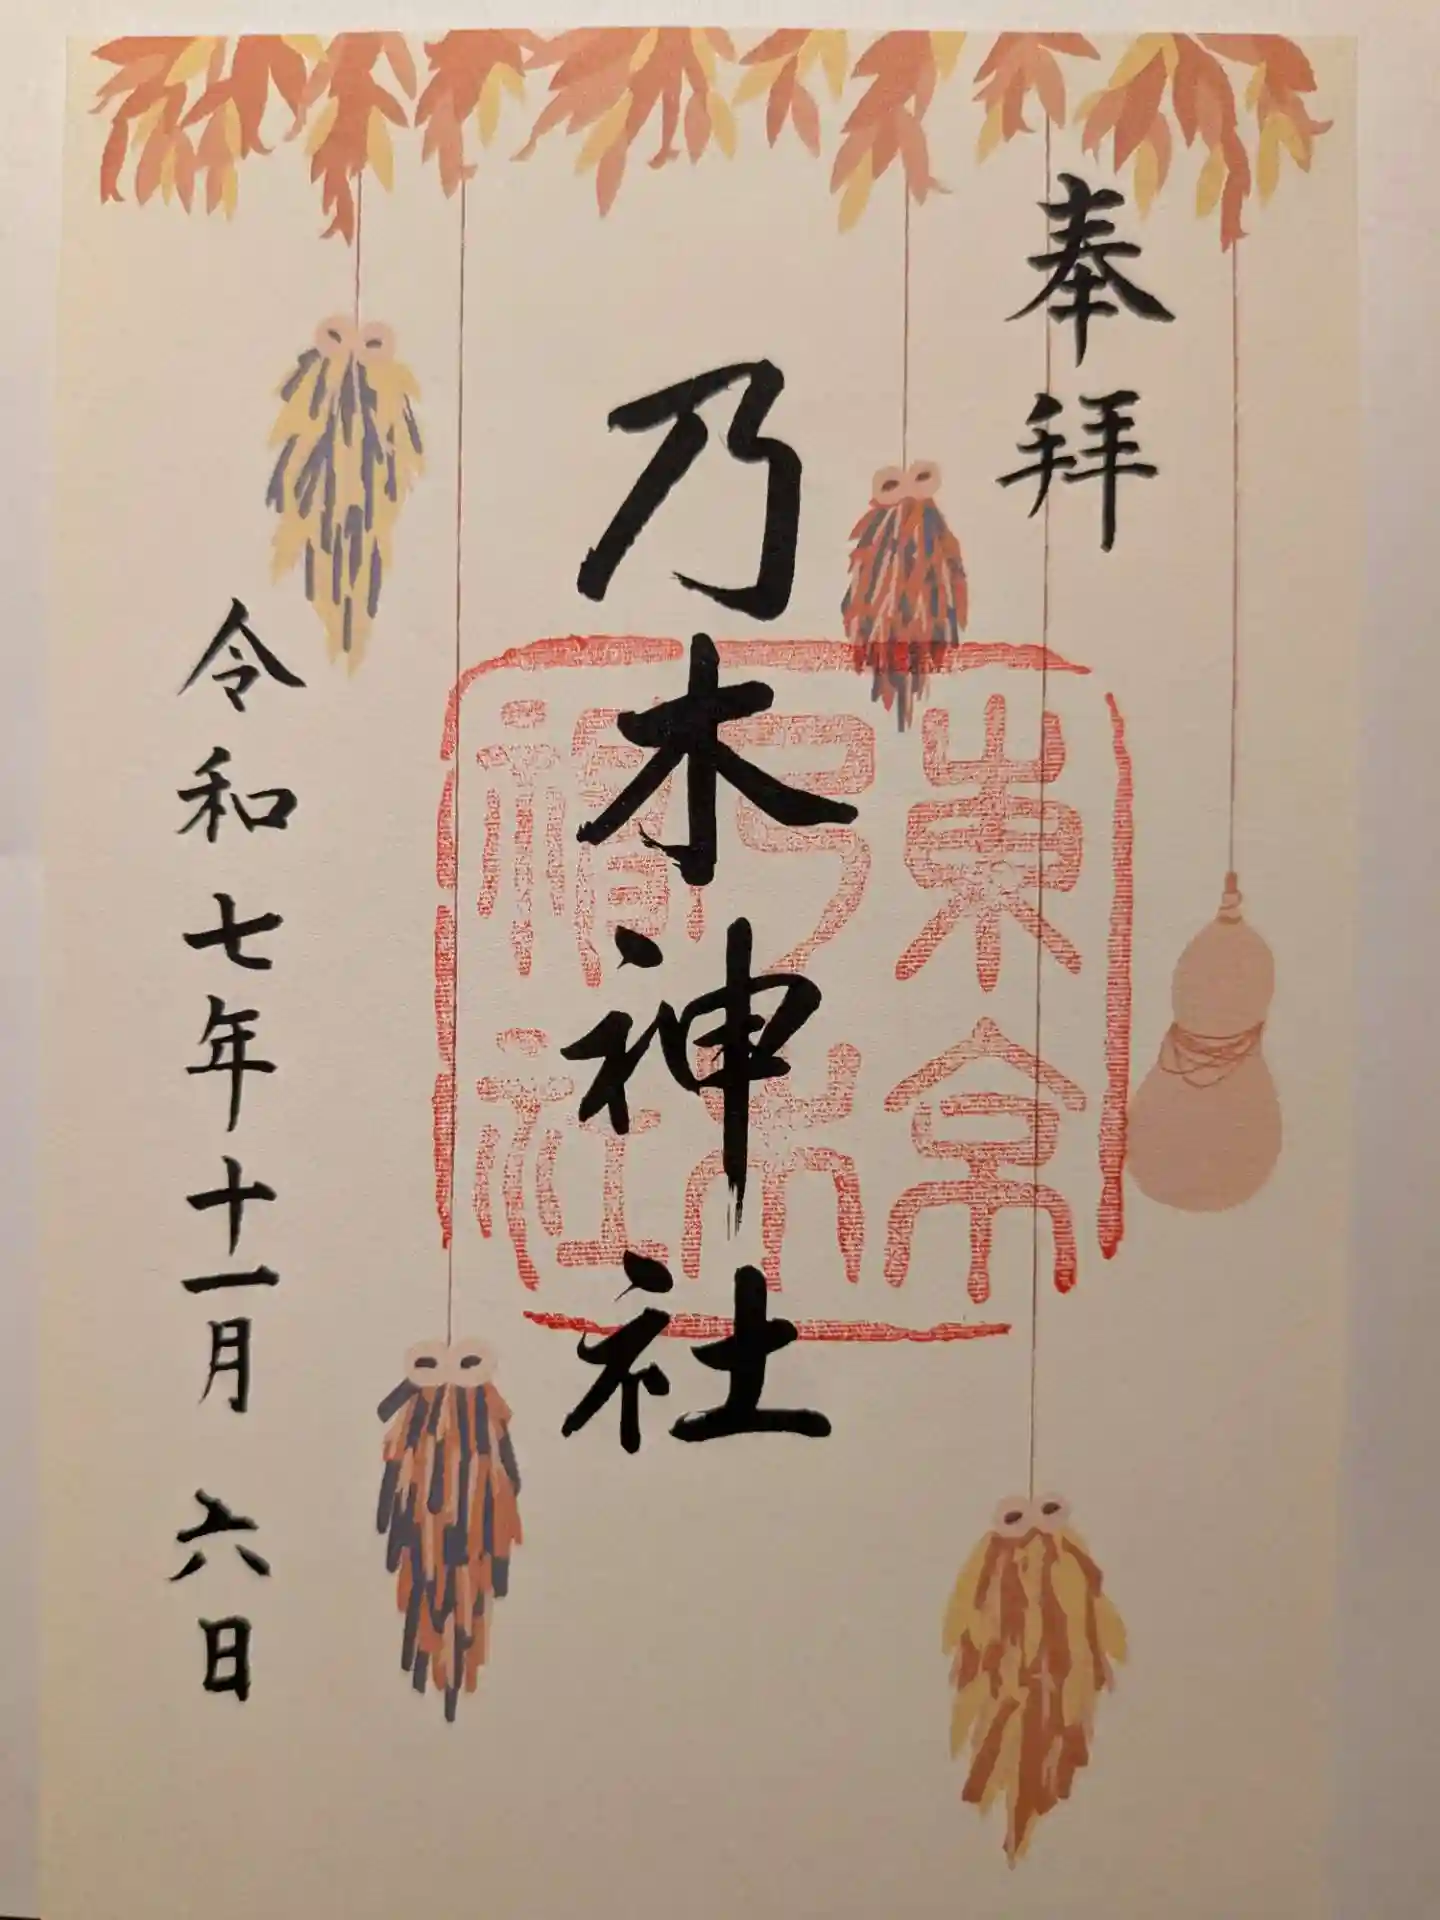 奉拝
乃木神社
東京
乃木
神社
令和七年十一月六日